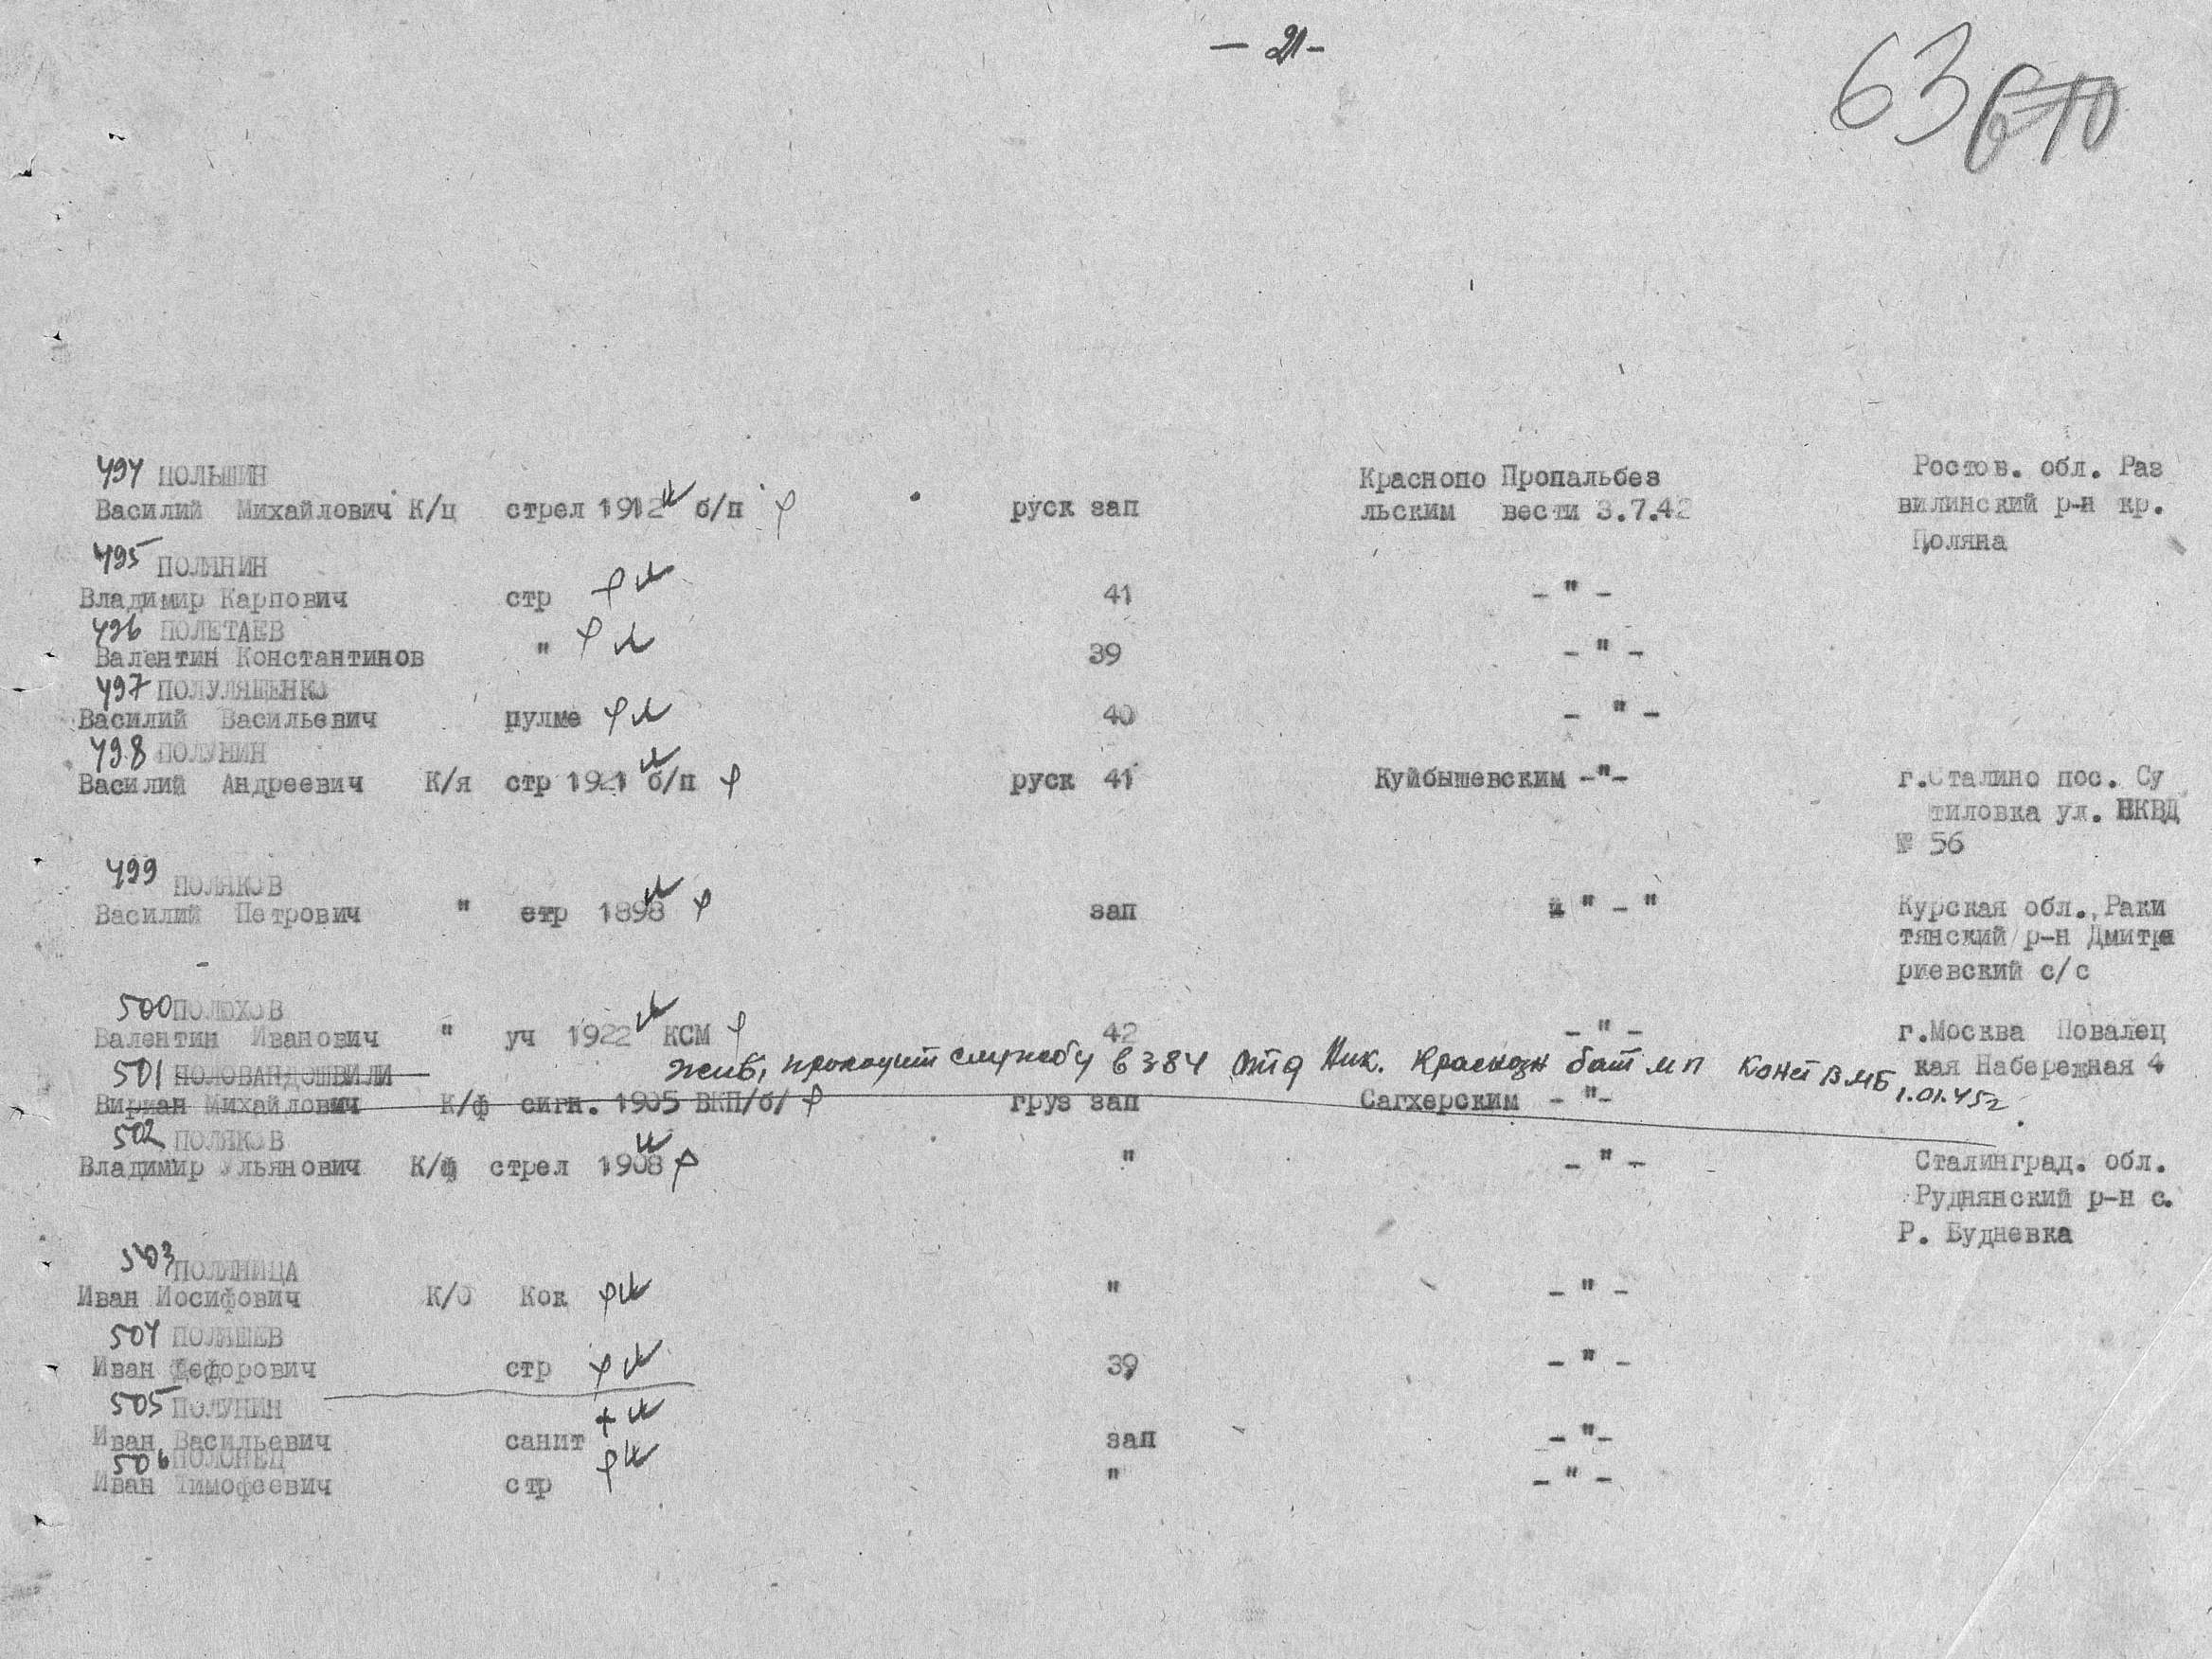 - 21 -
63 610
494 ПОЛЬШИН
Василий Михайлович К/ц стрел 1912 б/п руск зап Краснопо Пропальбез Ростов. обл. Раз
льским вести 3.7.42 вилинский р-н кр.
Поляна
495 ПОЛЯНИН
Владимир Карпович стр 41 - " -
496 ПОЛЕТАЕВ
Валентин Константинов " 39 - " -
497 ПОЛУЛЯЩЕНКО
Василий Васильевич пулме 40 - " -
498 ПОЛУНИН
Василий Андреевич К/я стр 1921 б/п руск 41 Куйбышевским -"- г.Сталино пос. Су
тиловка ул. НКВД
№ 56
499 ПОЛЯКОВ
Василий Петрович " стр 1898 зап " - " Курская обл., Раки
тянский р-н Дмитри
риевский с/с
500 ПОЛЮХОВ
Валентин Иванович " уч 1922 КСМ 42 - " - г.Москва Повалец
кая Набережная 4
501 ПОЛОВАНДОШВИЛИ Жив, проходит службу в 384 отд Ник. Краснозн бат МП Конст ВМБ 1.01.45г.
Вириан Михайлович К/ф сигн. 1905 ВКП/б/ груз зап Сагхерским - "-
502 ПОЛЯКОВ
Владимир Ульянович К/ф стрел 1908 " - " - Сталинград. обл.
Руднянский р-н с.
Р. Будневка
503 ПОЛЯНИЦА
Иван Иосифович К/О Кок " - " -
504 ПОЛЯШЕВ
Иван Фефорович стр 39 - " -
505 ПОЛУНИН
Иван Васильевич санит зап - "-
506 ПОЛОНЕЦ
Иван Тимофеевич стр " - " -